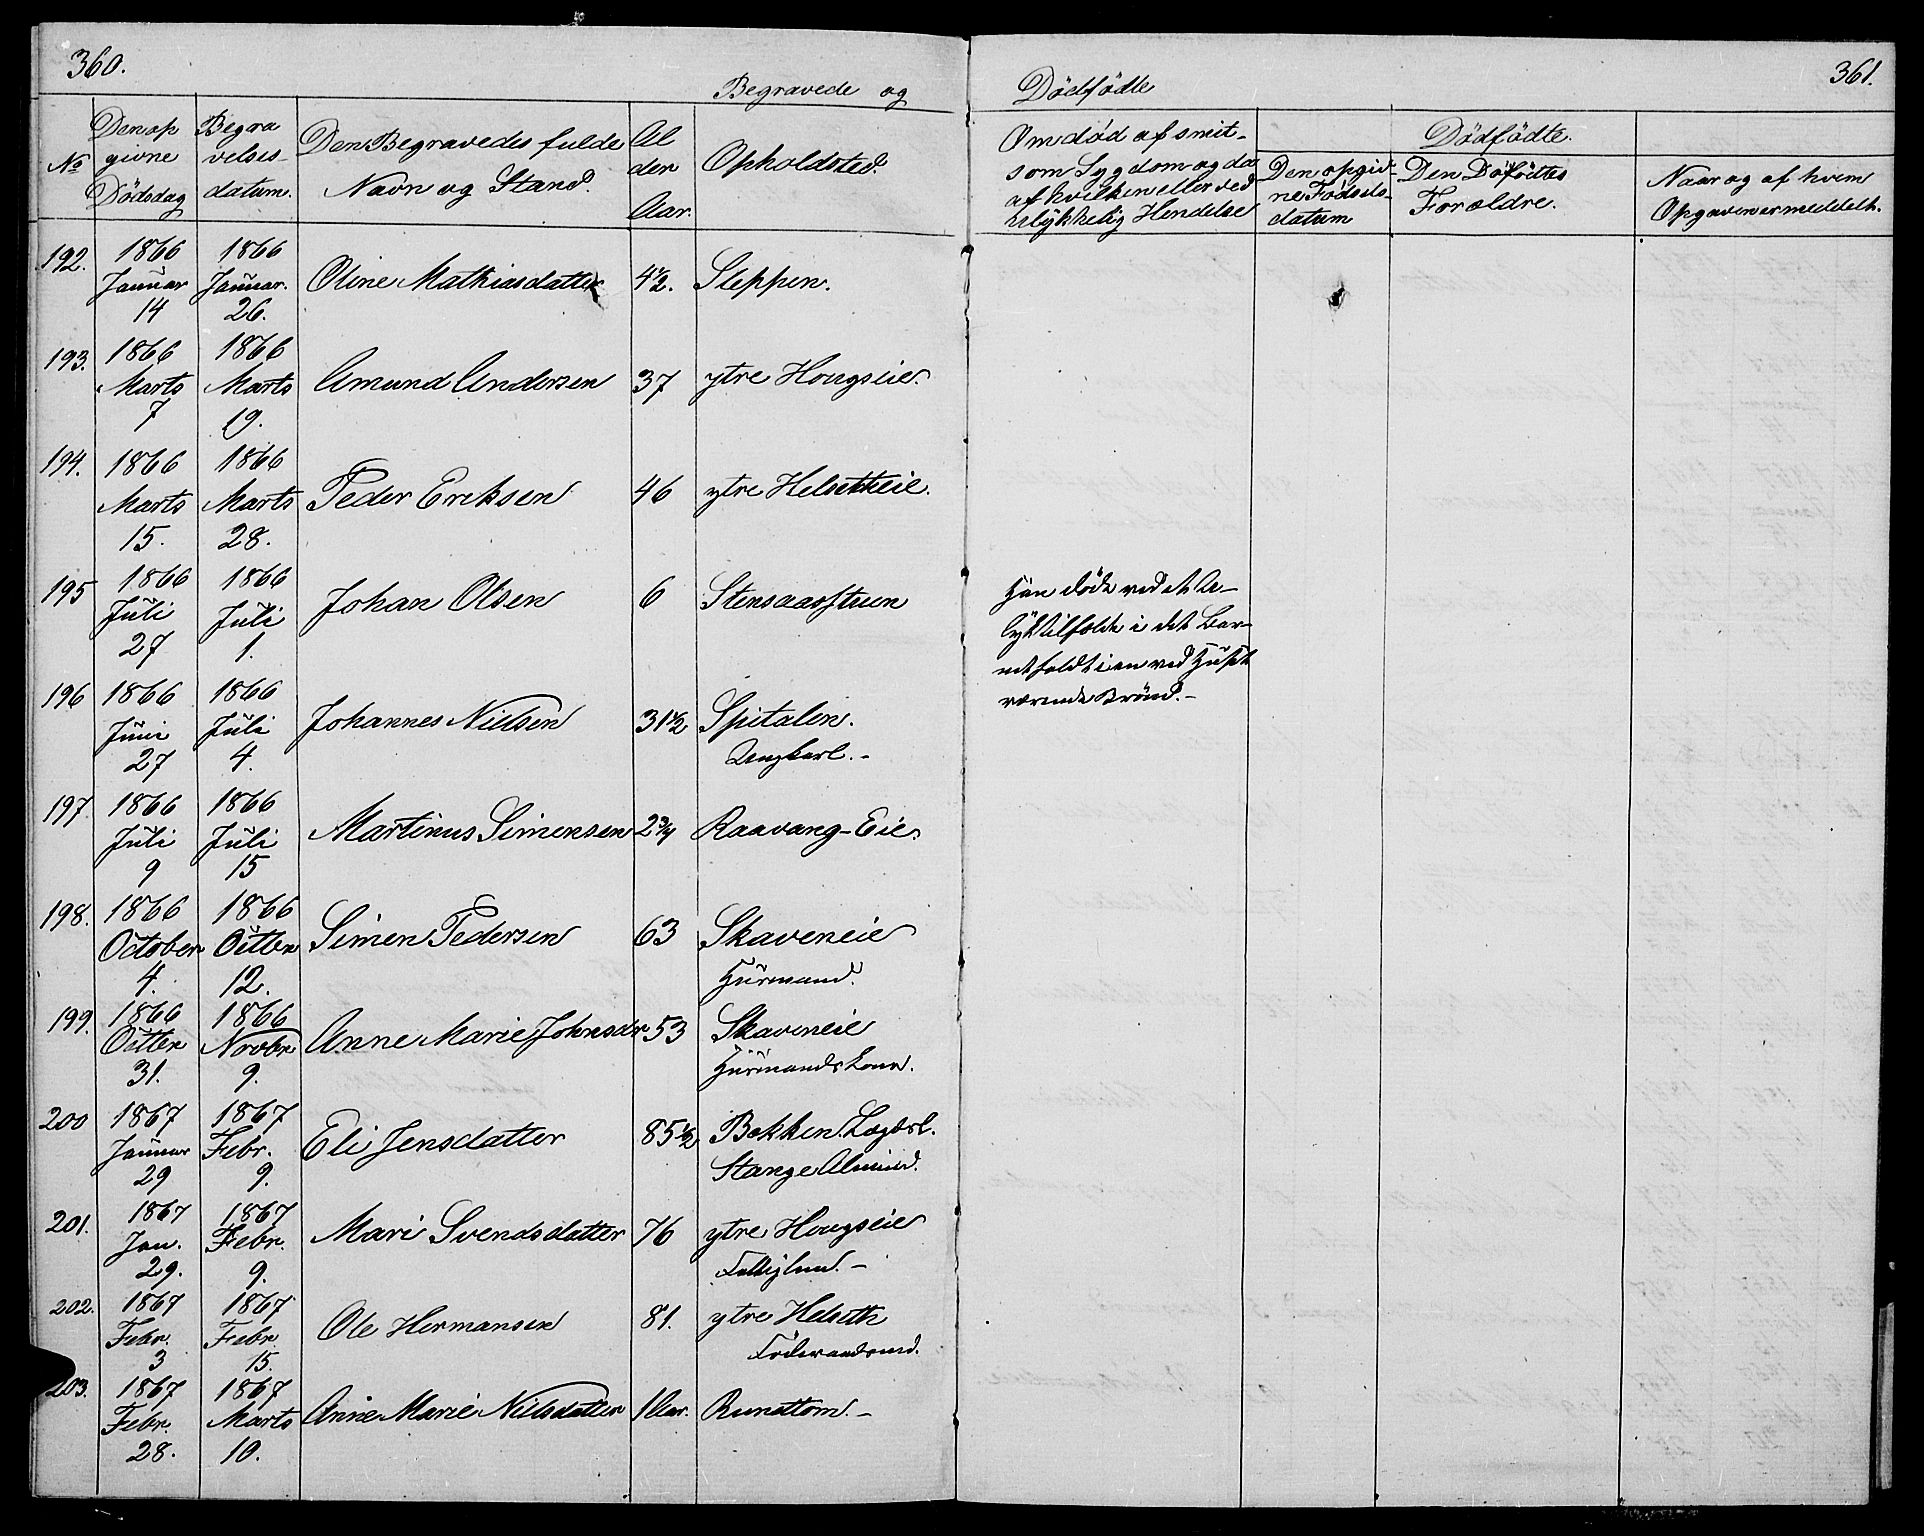 360.
Begravede og
No
Den op
givne
Dödsdag
Begra
velses-
datum.
Den Begravedes fulde
Navn og Stand.
Al
der
Aar.
Opholdsted.
192.
1866
Januar
14
1866
Januar.
26.
Oline Mathiasdatter
4½.
Steppen.
193.
1866
Marts
7
1866
Marts
19.
Amund Andersen
37
ytre Hougseie.
194.
1866
Marts
15.
1866
Marts
28.
Peder Eriksen
46
ytre Helsetheie.
195
1866
Juli
27
1866
Juli
1.
Johan Olsen
6
Stensaasstuen
196
1866
Juni
27
1866
Juli
4.
Johannes Nielsen
31½
Spitalen.
Ungkarl.-
197.
1866
Juli
9
1866
Juli
15
Martinus Simensen
2¾
Raavang-Eie.
198.
1866
October
4.
1866
Octbr
12.
Simen Pedersen
63
Skaveneie
Husmand.
199.
1866
Octbr
31.
1866
Novbr
9.
Anne Marie Johnsdr
53
Skaveneie
Husmandskone.
200
1867
Januar
29
1867
Febr.
9.
Eli Jensdatter
85½
Bekken. Lægdsl.
Stange Almind.
201.
1867
Jan.
29.
1867
Febr.
9.
Mari Svendsdatter
76
ytre Hougseie
Fattiglem.-
202.
1867
Febr.
3
1867
Febr
15.
Ole Hermansen
81.
ytre Helseth
Föderaadsmd.
203.
1867
Febr.
28.
1867
Marts
10.
Anne Marie Nilsdatter
1 Aar.
Rundtom.-
361.
Dödfödte
Om död af smit-
som Sygdom og da
af hvilken eller ved
ulykkelig Hendelse
Dödfödte.
Den opgiv-
ne Födsels-
datum
Den Döfödtes
Forældre.
Naar og af hvem
Opgaven er meddelt.
Han döde ved et U-
lykkestilfælde i det Bar-
net faldt i en ved Huset
værende Brönd.-